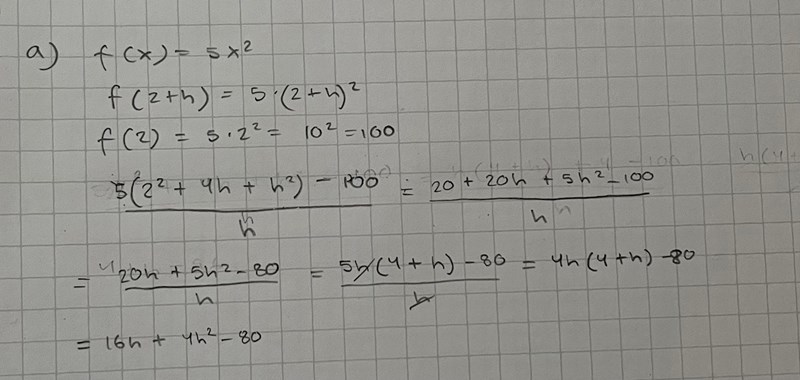 a) f(x) = 5x²
f(2+h) = 5·(2+h)²
f(2) = 5·2² = 10² = 100
5(2² + 4h + h²) - 100 / h = 20 + 20h + 5h² - 100 / h
= 20h + 5h² - 80 / h = 5h(4+h) - 80 / h = 4h(4+h) - 80
= 16h + 4h² - 80